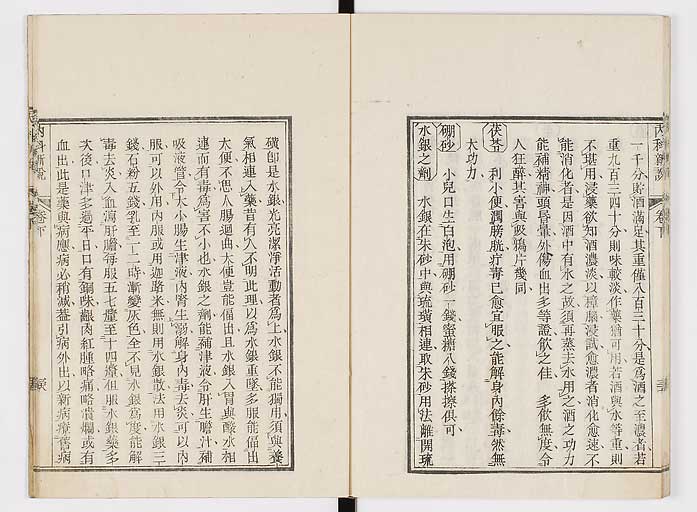 內科新說
卷下
一千分貯酒滿足其重僅八百三十分是爲酒之至濃者若
重九百三四十分則味較淡作藥猶可用若酒與水等重則
不堪用浸藥欲知酒濃淡以樟腦浸試愈濃者消化愈速不
能消化者是因酒中有水之故須再蒸去水用之酒之功力
能補精神頭昏暈外傷血出多等證飮之佳 多飮無度令
人狂醉其害與吸鴉片幾同
茯苓 利小便潤膀胱疗毒已愈宜服之能解身內餘毒然無
大功力
硼砂 小兒口生白泡用硼砂一錢蜜糖八錢搽擦俱可
水銀之劑 水銀在朱砂中與琉璜相連取朱砂用法離開琉
璜卽是水銀光亮潔淨活動者爲上水銀不能獨用須與養
氣相連入藥昔有人不明此理以爲水銀重墜多服能偪出
大便不思人腸迴曲大便豈能偪出且水銀入胃與酸水相
連而有毒爲害不小也水銀之劑能補津液令肝生膽汁補
吸液管令大小腸生津液內腎生溺解身內毒去炎可以內
服可以外用內服或用迦路米無則用水銀散法用水銀三
錢石粉五錢乳至一二時漸變灰色全不見水銀爲度能解
毒去炎入血瀉肝膽每服五七釐至十四釐但服水銀藥多
次後口津多過平日口有銅味齦肉紅腫略痛略潰爛或有
血出此是藥與病應病必稍減蓋引病外出以新病療舊病
內科新說
卷下